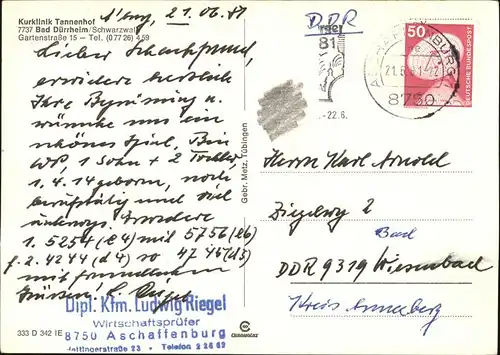 Kurklinik Tannenhof
7737 Bad Dürrheim/Schwarzwald
Gartenstraße 15 – Tel. (07726) 459
A'burg, 21.06.81
Lieber Schachfreund,
erwidere herzlich
Ihre Begrüßung u.
wünsche uns ein
schönes Spiel. Bin
WP, 1 Sohn + 2 Töchter,
1.4.14 geboren, noch
berufstätig und viel
unterwegs. Erwidere
1. 5254 (e4) mit 5756 (e6)
f. 2. 4244 (d4) so 4745 (d5)
mit freundlichen
Grüssen, L. Riegel
Dipl. Kfm. Ludwig Riegel
Wirtschaftsprüfer
8750 Aschaffenburg
Telefon 22662
333 D 342 IE
Gebr. Metz, Tübingen
DDR
81
-22.6.
ASCHAFFENBURG
21.6.81
8750
50
DEUTSCHE BUNDESPOST
Herrn Karl Arnold
Ziegelweg 2
Bad
DDR 9319 Wiesenbad
Kreis Annaberg